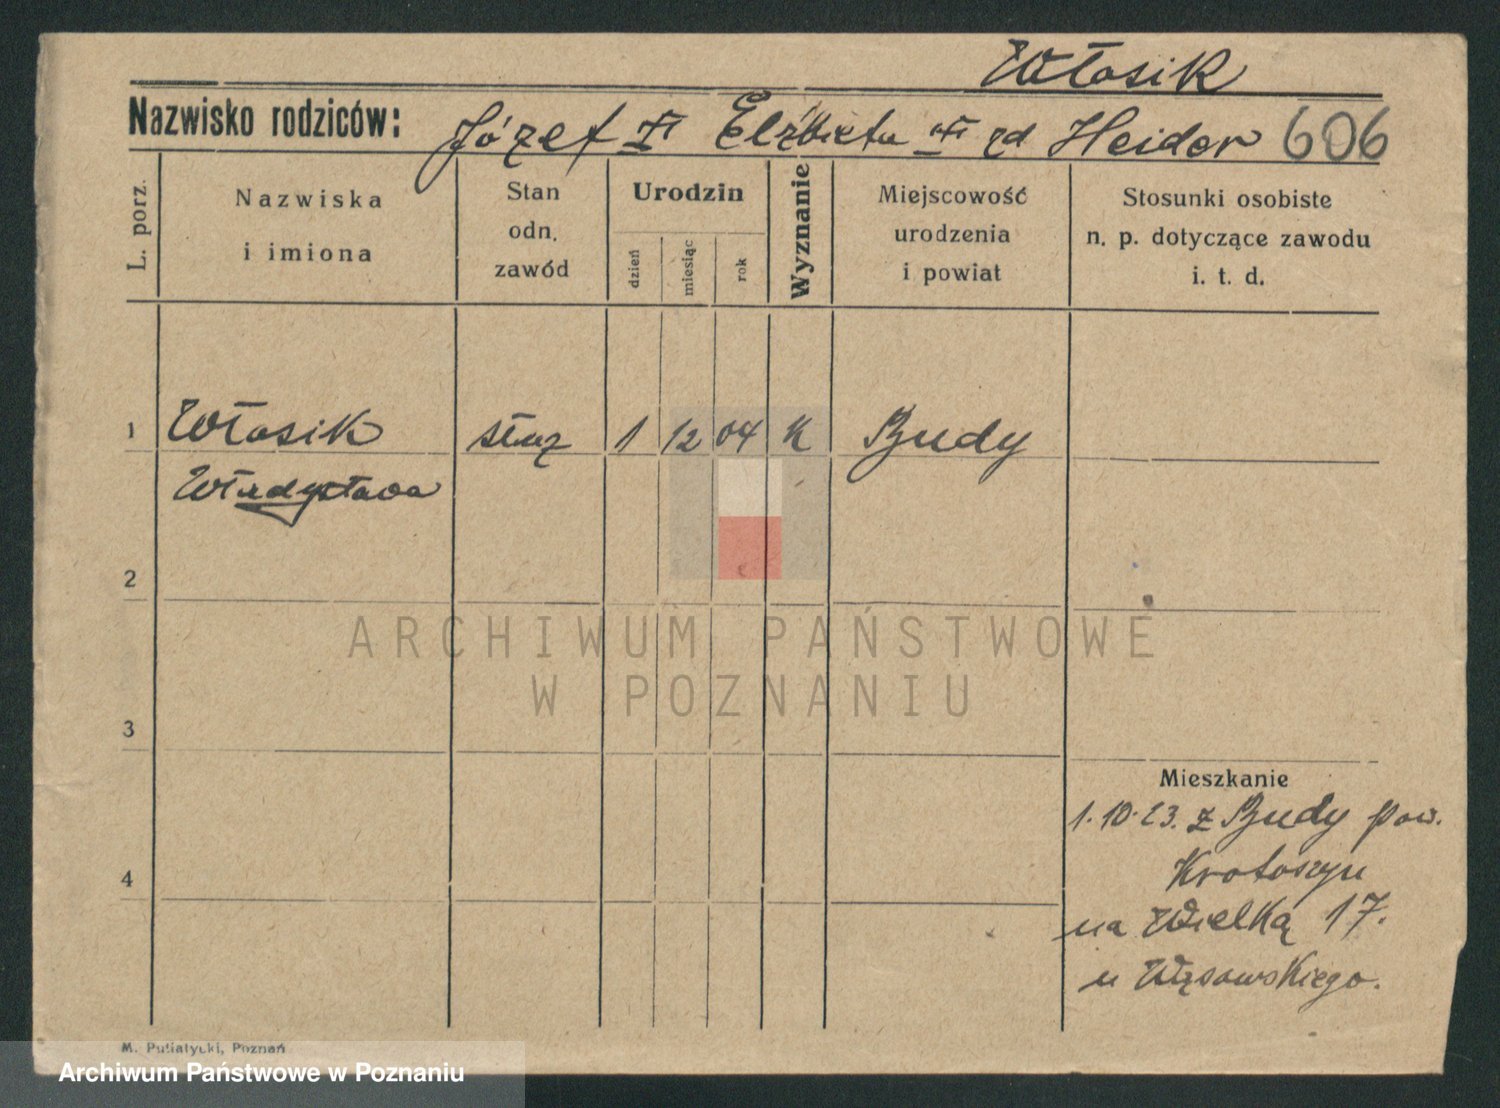 Włosik
Nazwisko rodziców: Józef Elżbieta zd Heider 606
L. porz.
Nazwiska
i imiona
Stan
odn.
zawód
Urodzin
dzień
miesiąc
rok
Wyznanie
Miejscowość
urodzenia
i powiat
Stosunki osobiste
n. p. dotyczące zawodu
i. t. d.
1 Włosik służ 1 12 04 K Budy
Władysława
2
ARCHIWUM PAŃSTWOWE
W POZNANIU
3
Mieszkanie
1.10.23. z Budy pow.
Krotoszyn
4
na Wielką 17.
u Wąsowskiego.
M. Putiatycki, Poznań
Archiwum Państwowe w Poznaniu